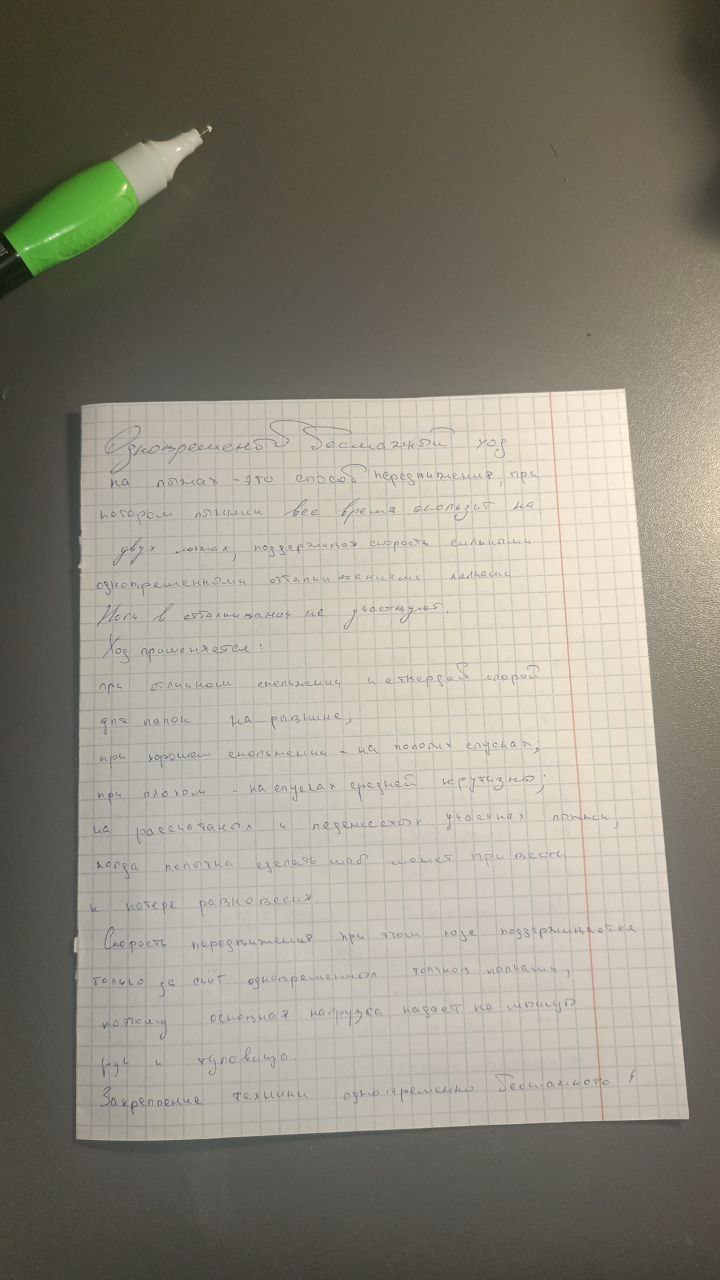 Одновременой бесшажный ход
на лыжах - это способ передвижения, при
котором лыжник все время скользит на
двух лыжах, поддерживая скорость сильными
одновременными отталкиваниями палками.
Ноги в отталкивании не участвуют.
Ход применяется:
при отличном скольжении и твердой опорой
для палок на равнине;
при хорошем скольжении - на пологих спусках;
при плохом - на спусках средней крутизны;
на раскатаных и леденистых участках лыжни,
когда попытка сделать шаг может привести
к потере равновесия.
Скорость передвижения при этом ходе поддерживается
только за счёт одновременных толчков палками,
поэтому основная нагрузка падает на мышцы
рук и туловища.
Закрепление техники одновременно бесшажного